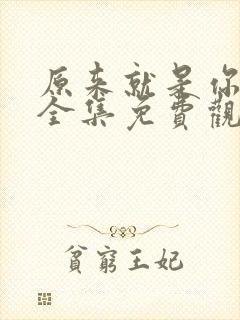 原来就是你
全集免費觀
貧窮王妃